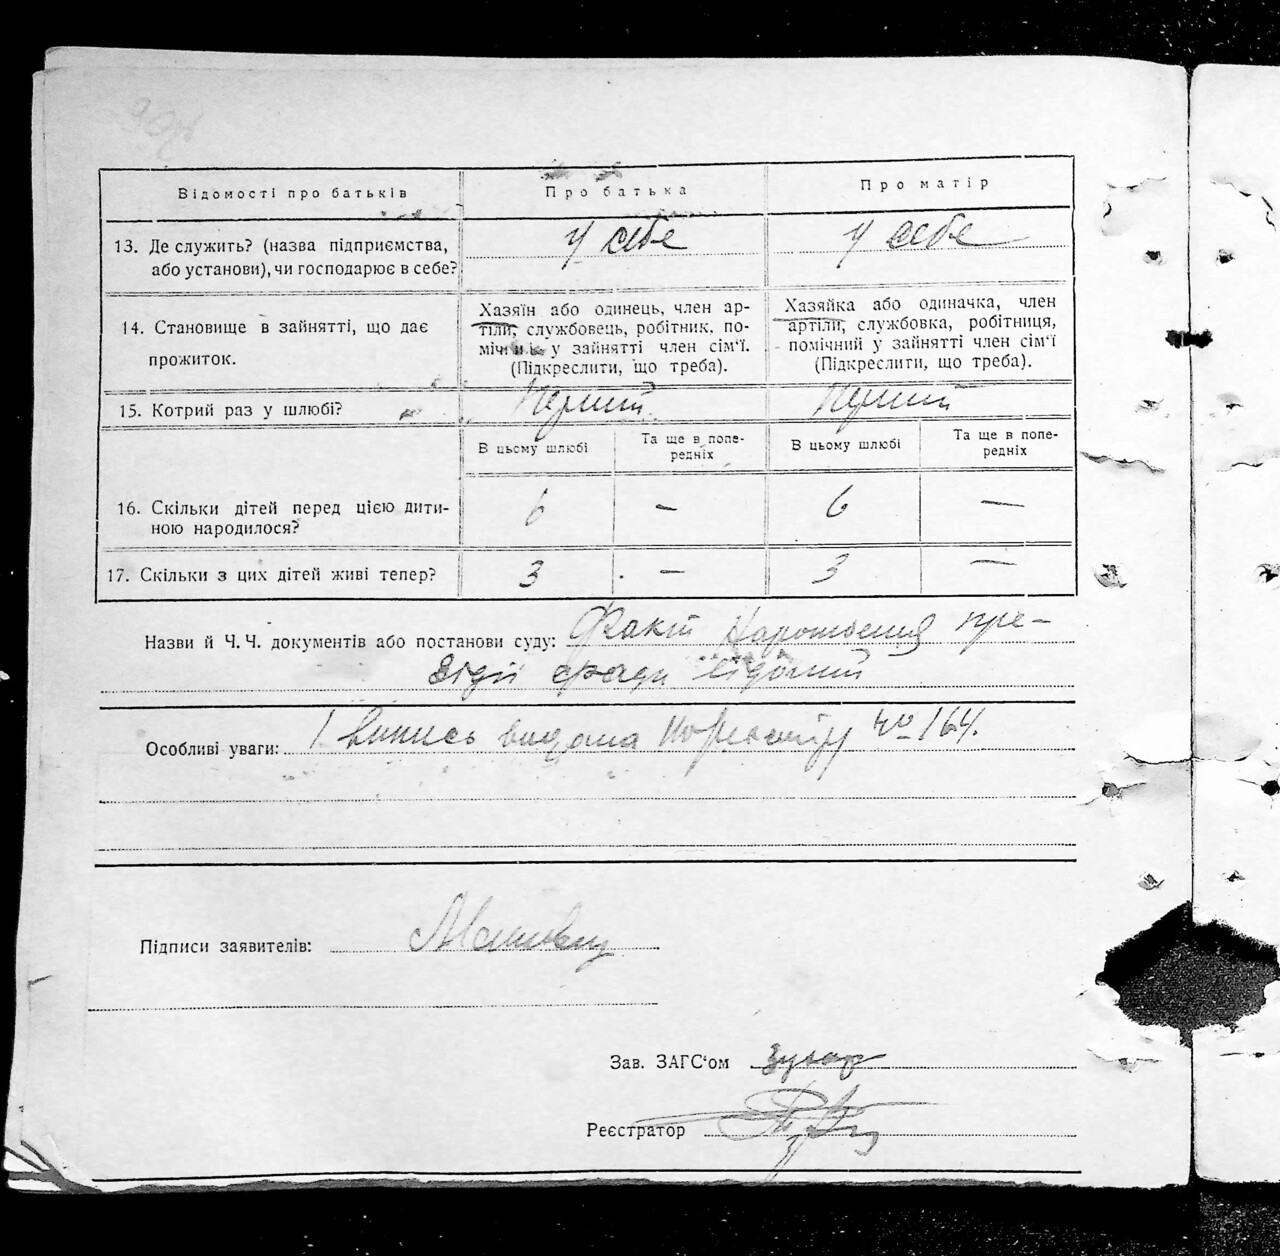 Відомості про батьків
Про батька
Про матір
13. Де служить? (назва підприємства, або установи), чи господарює в себе?
у себе
у себе
14. Становище в зайнятті, що дає прожиток.
Хазяїн або одинець, член ар-
тіли, службовець, робітник, по-
мічний у зайнятті член сім'ї.
(Підкреслити, що треба).
Хазяйка або одиначка, член
артіли, службовка, робітниця,
помічний у зайнятті член сім'ї
(Підкреслити, що треба).
15. Котрий раз у шлюбі?
Перший
Перший
В цьому шлюбі
Та ще в попе-
редніх
В цьому шлюбі
Та ще в попе-
редніх
16. Скільки дітей перед цією дити-
ною народилося?
6
—
6
—
17. Скільки з цих дітей живі тепер?
3
—
3
—
Назви й Ч. Ч. документів або постанови суду: Факт народження пре-
зідії сради відомий
Особливі уваги: Випись видана № 164.
Підписи заявителів:
Зав. ЗАГС'ом
Реєстратор